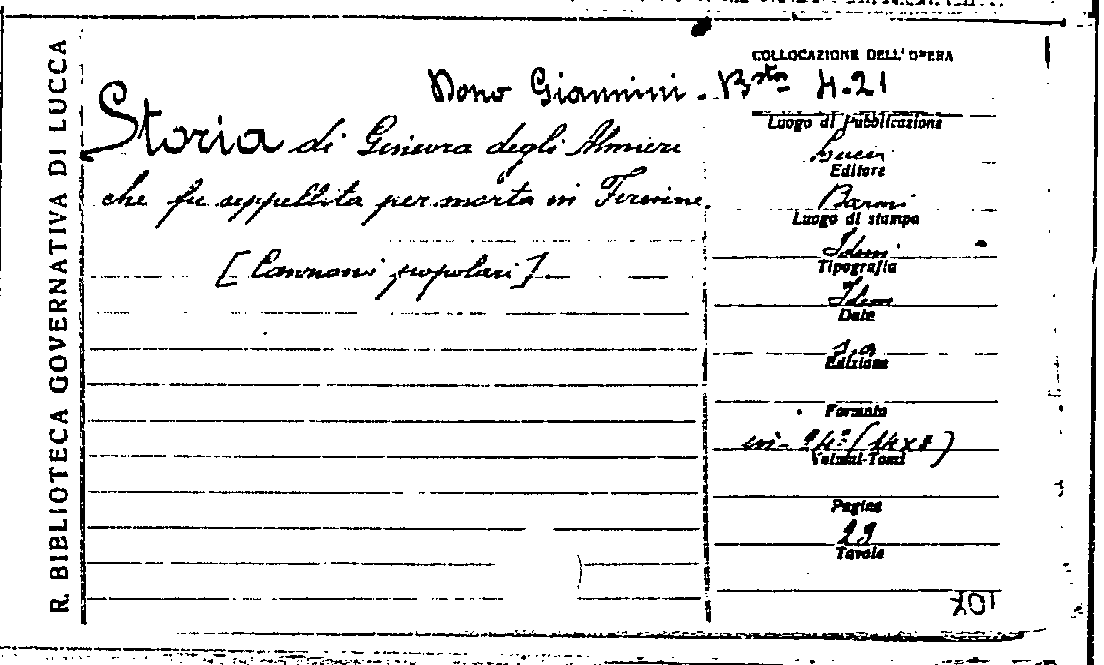 R. BIBLIOTECA GOVERNATIVA DI LUCCA
COLLOCAZIONE DELL'OPERA
Dono Giannini. Bsta H.21
Storia di Ginevra degli Almieri
che fu seppellita per morta in Firenze.
[Canzoni popolari]
Luogo di Pubblicazione
Lucca
Editore
Baroni
Luogo di stampa
Idem
Tipografia
Idem
Date
s.a
Edizione
Formato
in-24º (14x8)
Volumi-Tomi
Pagine
23
Tavole